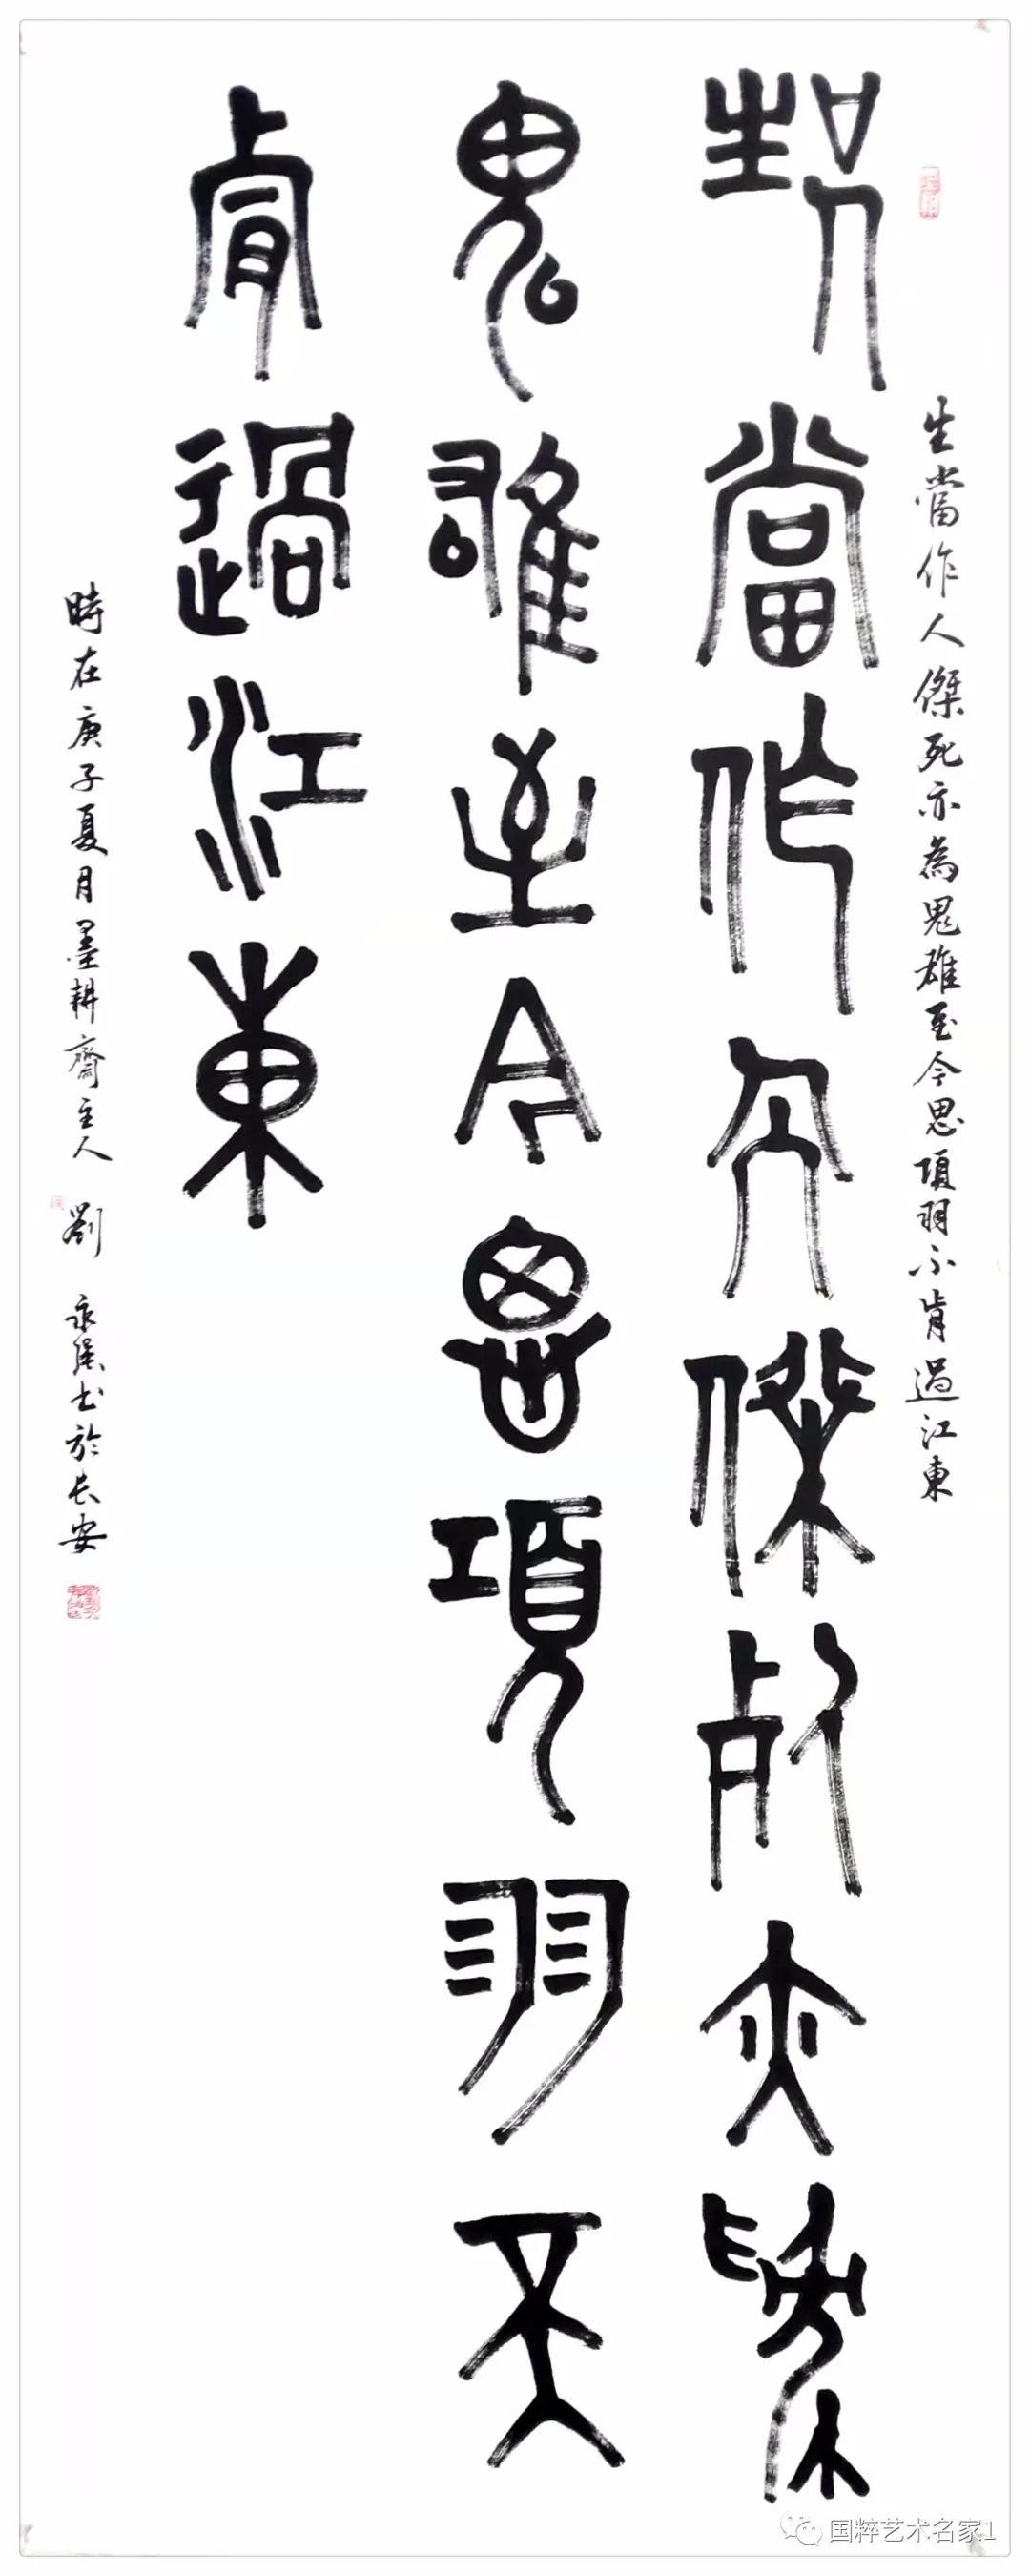 生當作人傑死亦為
鬼雄至今思項羽不
肯過江東
生當作人傑死亦為鬼雄至今思項羽不肯過江東
時在庚子夏月墨耕齋主人劉永隆书於长安
国粹艺术名家1